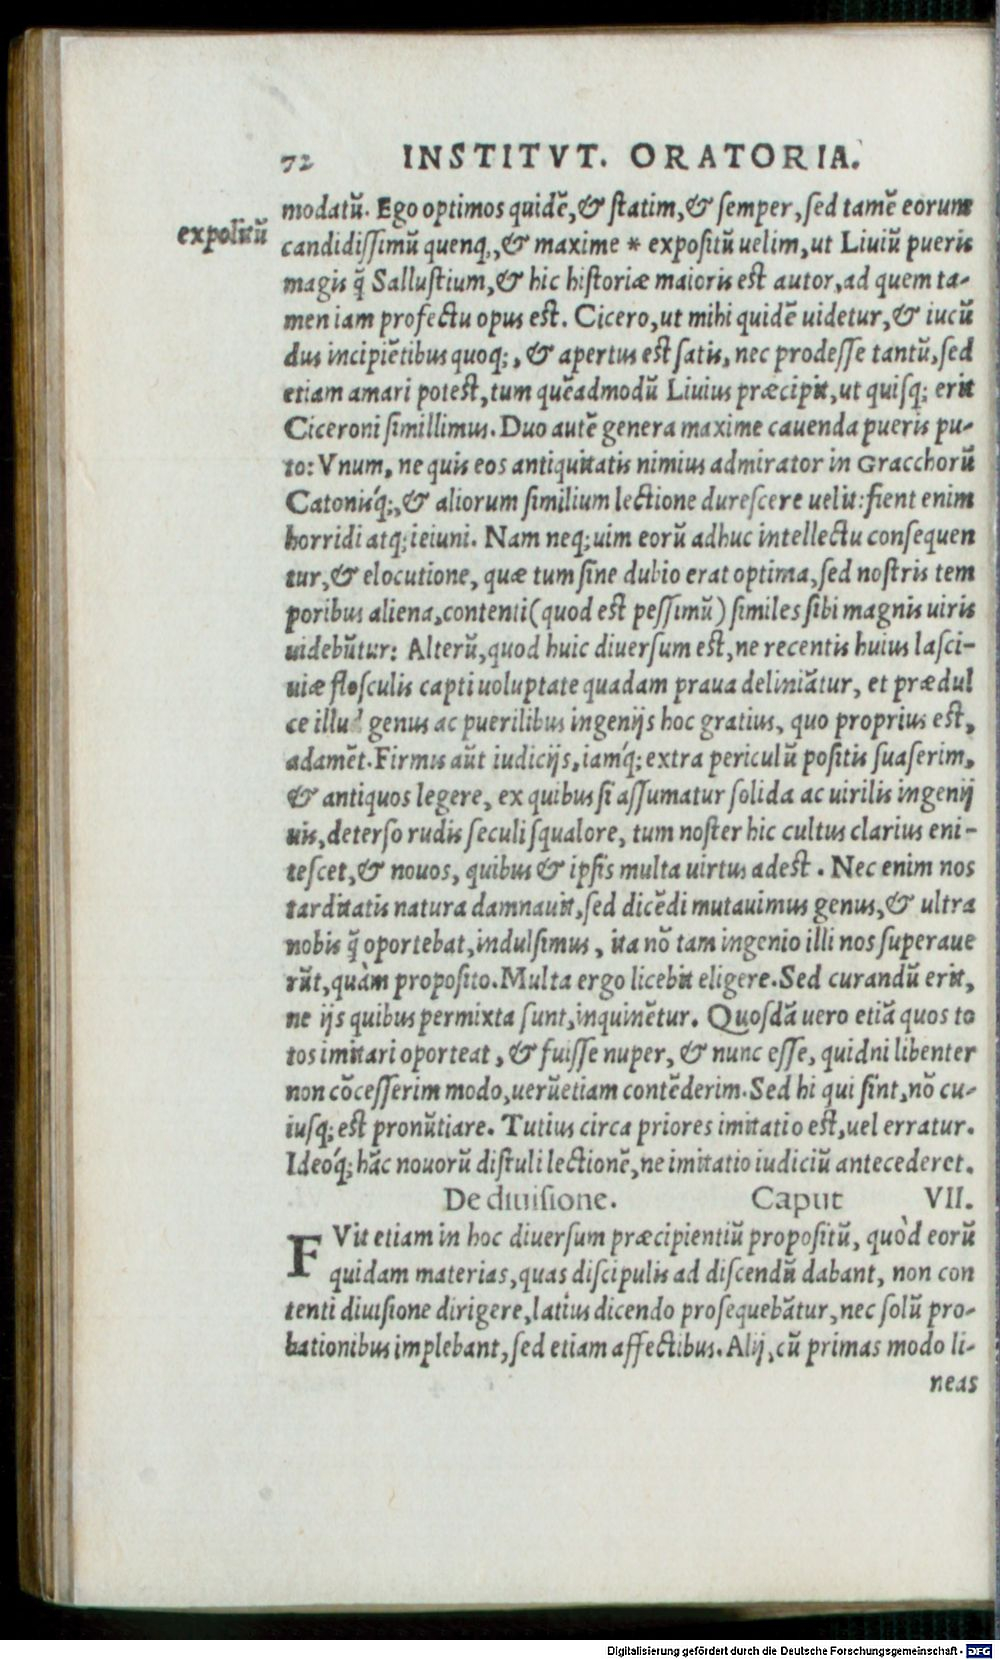 72 INSTITVT. ORATORIA.
modatũ. Ego optimos quidẽ, & ſtatim, & ſemper, ſed tamẽ eorum
expolitũ
candidiſſimũ quenq;, & maxime * expoſitũ uelim, ut Liuiũ pueris
magis q̃ Salluſtium, & hic hiſtoriæ maioris eſt autor, ad quem ta-
men iam profectu opus eſt. Cicero, ut mihi quidẽ uidetur, & iucũ
dus incipiẽtibus quoq;, & apertus eſt ſatis, nec prodeſſe tantũ, ſed
etiam amari poteſt, tum quẽadmodũ Liuius præcipit, ut quiſq; erit
Ciceroni ſimillimus. Duo autẽ genera maxime cauenda pueris pu-
to: Vnum, ne quis eos antiquitatis nimius admirator in Gracchorũ
Catonisq́;, & aliorum ſimilium lectione dureſcere uelit: fient enim
horridi atq; ieiuni. Nam neq; uim eorũ adhuc intellectu conſequen
tur, & elocutione, quæ tum ſine dubio erat optima, ſed noſtris tem
poribus aliena, contenti (quod eſt peſſimũ) ſimiles ſibi magnis uiris
uidebũtur: Alterũ, quod huic diuerſum eſt, ne recentis huius laſci-
uiæ floſculis capti uoluptate quadam praua deliniãtur, et prædul
ce illud genus ac puerilibus ingenijs hoc gratius, quo proprius eſt,
adamẽt. Firmis aũt iudicijs, iamq́; extra periculũ poſitis ſuaſerim,
& antiquos legere, ex quibus ſi aſſumatur ſolida ac uirilis ingenij
uis, deterſo rudis ſeculi ſqualore, tum noſter hic cultus clarius eni-
teſcet, & nouos, quibus & ipſis multa uirtus adeſt. Nec enim nos
tarditatis natura damnauit, ſed dicẽdi mutauimus genus, & ultra
nobis q̃ oportebat, indulſimus, ita nõ tam ingenio illi nos ſuperaue
rũt, quàm propoſito. Multa ergo licebit eligere. Sed curandũ erit,
ne ijs quibus permixta ſunt, inquinẽtur. Quoſdã uero etiã quos to
tos imitari oporteat, & fuiſſe nuper, & nunc eſſe, quidni libenter
non cõceſſerim modo, uerũetiam contẽderim. Sed hi qui ſint, nõ cu-
iuſq; eſt pronũtiare. Tutius circa priores imitatio eſt, uel erratur.
Ideoq́; hãc nouorũ diſtuli lectionẽ, ne imitatio iudiciũ antecederet.
De diuiſione. Caput VII.
FVit etiam in hoc diuerſum præcipientiũ propoſitũ, quòd eorũ
quidam materias, quas diſcipulis ad diſcendũ dabant, non con
tenti diuiſione dirigere, latius dicendo proſequebãtur, nec ſolũ pro-
bationibus implebant, ſed etiam affectibus. Alij, cũ primas modo li-
neas
Digitalisierung gefördert durch die Deutsche Forschungsgemeinschaft - DFG